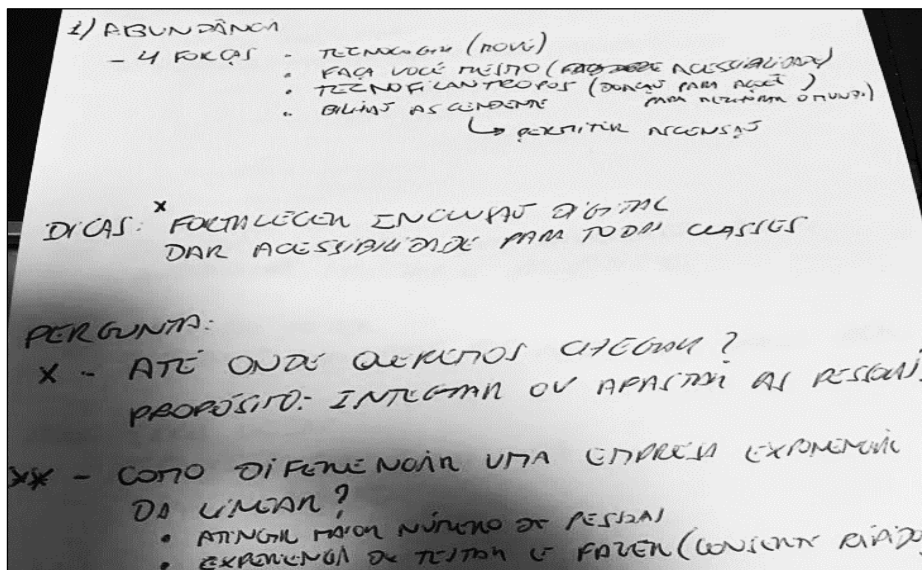 1) ABUNDÂNCIA
- 4 FORÇAS - TECNOLOGIA (MOVE)
• FAÇA VOCÊ MESMO ( ACESSIBILIDADE)
• TECNOFILANTROPOS (DOAÇÃO PARA AÇÕES )
• BILHÃO ASCENDENTE PARA MELHORAR O MUNDO)
↳ PERMITIR ASCENSÃO
DICAS: * FORTALECER INCLUSÃO DIGITAL
DAR ACESSIBILIDADE PARA TODAS CLASSES
PERGUNTA:
X - ATÉ ONDE QUEREMOS CHEGAR?
PROPÓSITO: INTEGRAR OU AFASTAR AS PESSOAS
XX - COMO DIFERENCIAR UMA EMPRESA EXPONENCIAL
DA LINEAR?
• ATINGIR MAIOR NÚMERO DE PESSOAS
• EXPERIENCIA DE TESTAR E FAZER (CONSERTE RÁPIDO